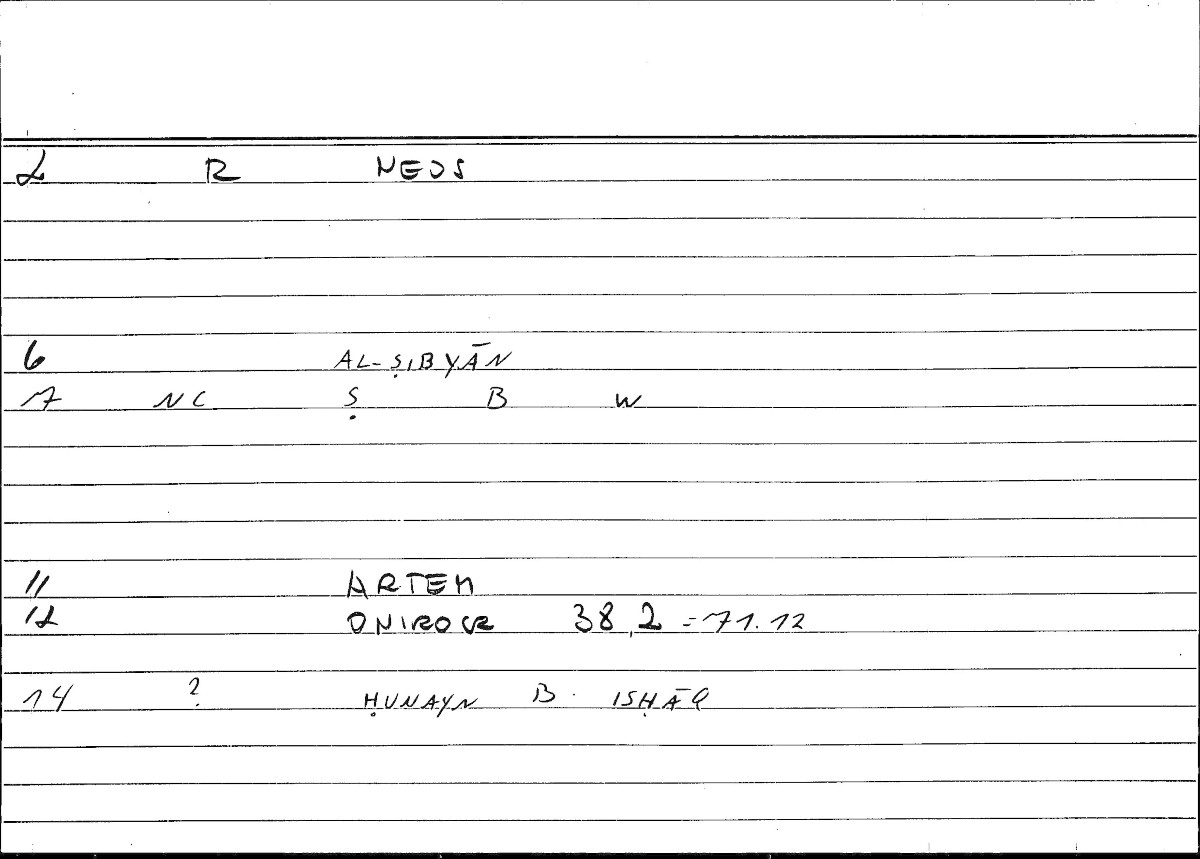 2 R NEOS
6 AL-ṢIBYĀN
7 NC Ṣ B W
11 ARTEM
12 ONIROCR 38,2 = 71.12
14 ? ḤUNAYN B. ISḤĀQ